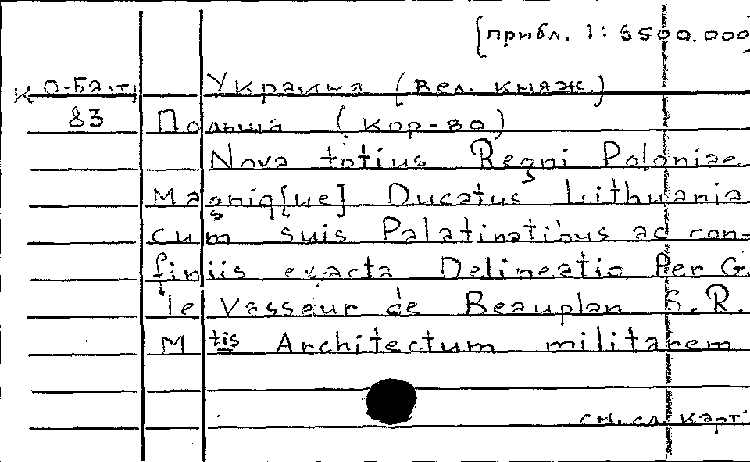 [прибл. 1: 6500.000
К О-Ба.т, Украина (Вел. княж.)
83 Польша (кор-во)
Nova totius Regni Poloniae
Magniq[ue] Ducatus Lithuania
cum suis Palatinatibus ac con-
finiis exacta Delineatio Per G.
le Vasseur de Beauplan S.R.
M tis Architectum militarem
см. сл. карт